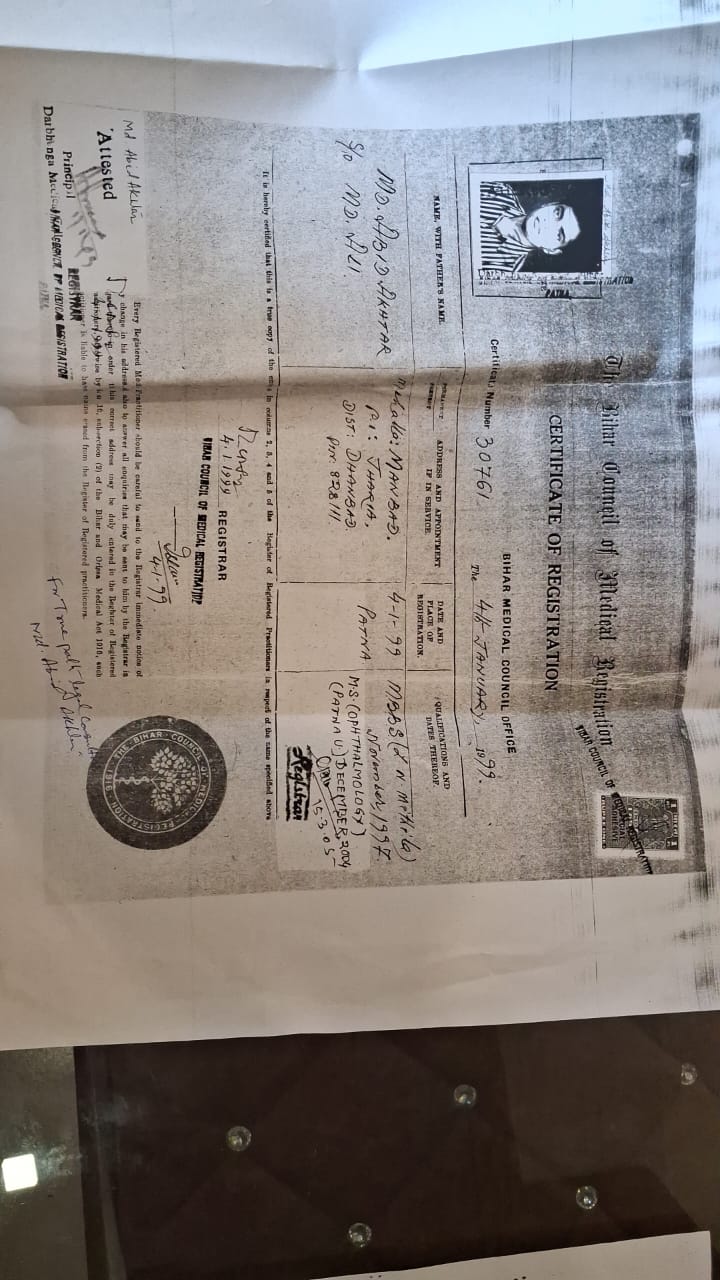 The Bihar Council of Medical Registration
CERTIFICATE OF REGISTRATION
BIHAR MEDICAL COUNCIL OFFICE
Certificate Number 30761. The 4th JANUARY, 1999.
NAME, WITH FATHER'S NAME.
PERMANENT ADDRESS AND APPOINTMENT
PRESENT IF IN SERVICE.
DATE AND
PLACE OF
REGISTRATION.
QUALIFICATIONS AND
DATES THEREOF.
MD. ABID AKHTAR
S/o MD. ALI.
Mohalla: MANBAD.
P.: JHARIA,
DIST: DHANBAD.
Pin: 828111.
4-1-99
PATNA
MBBS (L. n. Mithila)
November, 1997.
M.S. (OPHTHALMOLOGY)
(PATNA U) DECEMBER, 2004
Registrar
15.3.05
It is hereby certified that this is a true copy of the entries in columns 2, 3, 4 and 5 of the Register of Registered Practitioners in respect of the name specified above
4.1.1999 REGISTRAR
BIHAR COUNCIL OF MEDICAL REGISTRATION
4-1-99
Every Registered Practitioner should be careful to send to the Registrar immediate notice of
any change in his address, also to answer all enquiries that may be sent to him by the Registrar in
order that his correct address may be duly entered in the Register of Registered
of the Bihar and Orissa Medical Act 1916, such
is liable to have name erased from the Register of Registered practitioners.
Md Abid Akhtar
Attested
Principal
Darbhanga Medical College
REGISTRAR
BIHAR COUNCIL OF MEDICAL REGISTRATION
PATNA
For True path legal
Md. Abid Akhtar
THE BIHAR COUNCIL OF MEDICAL REGISTRATION
BIHAR COUNCIL OF MEDICAL REGISTRATION